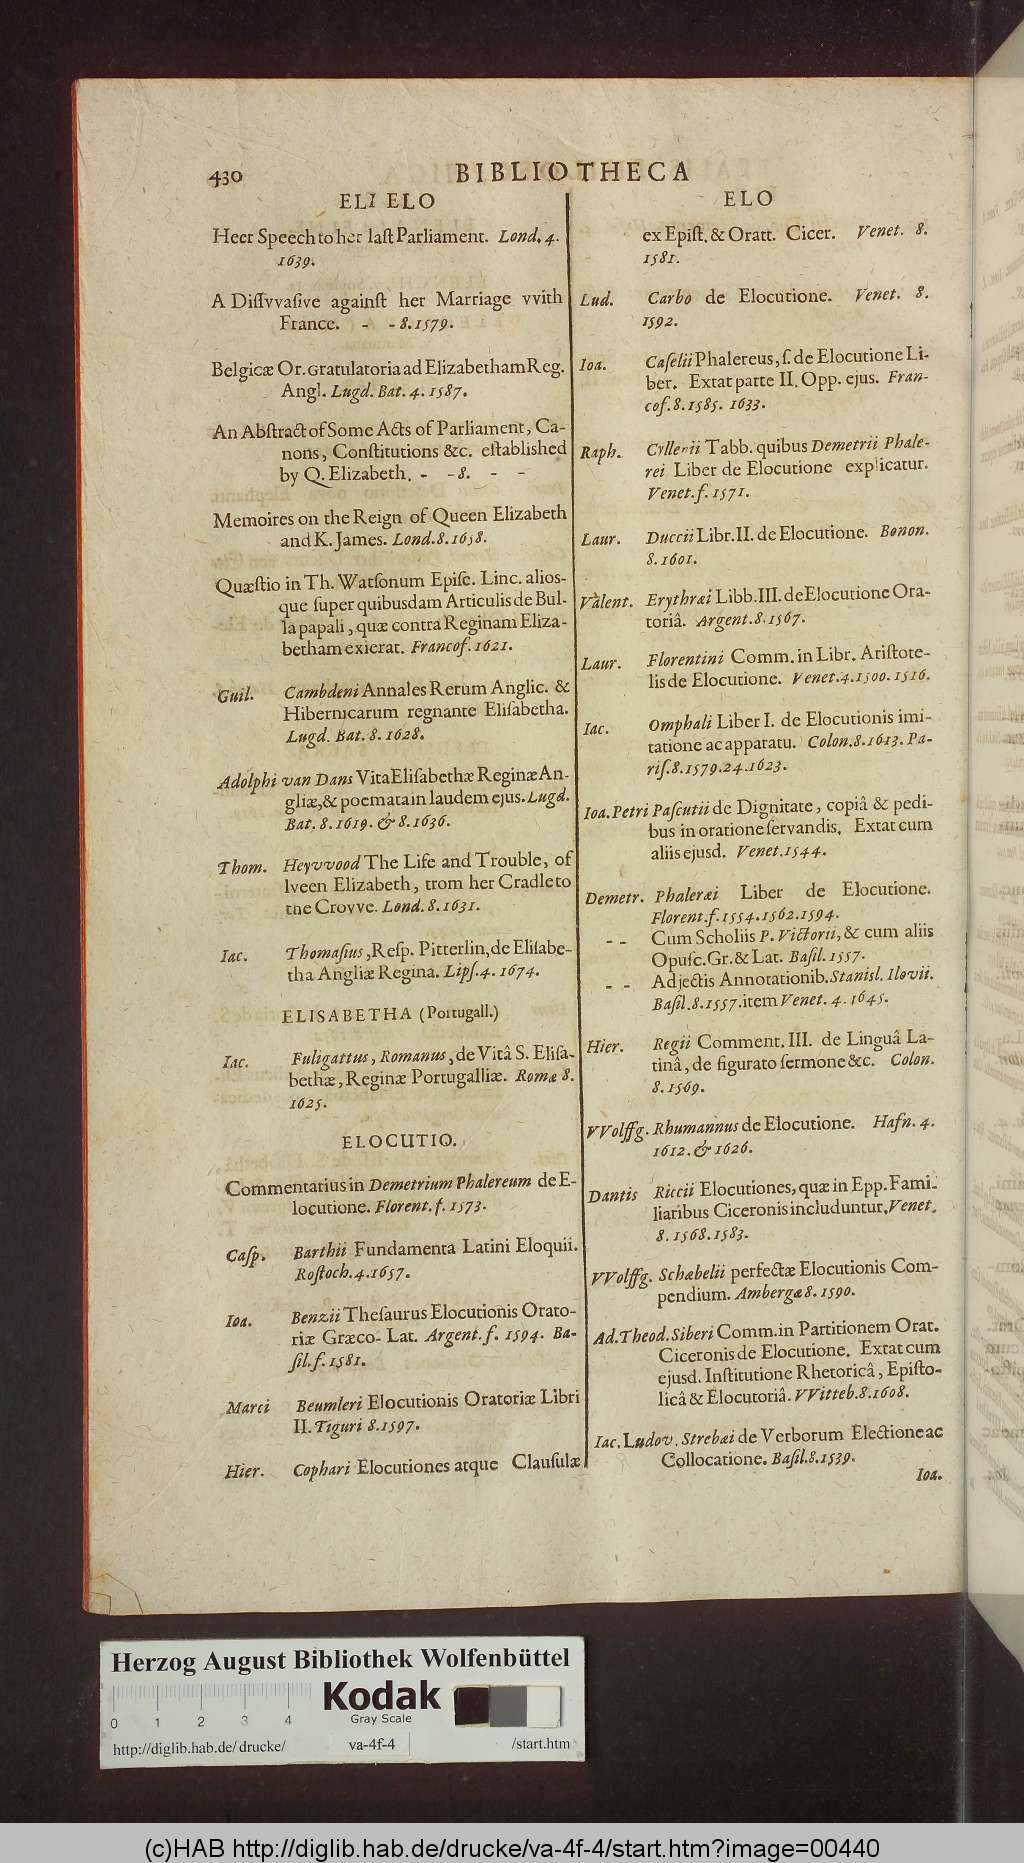 430
BIBLIOTHECA
ELI ELO
Heer Speech to her laſt Parliament. Lond. 4.
1639.
A Diſſvvaſive againſt her Marriage vvith
France. - - 8. 1579.
Belgicæ Or. gratulatoria ad Elizabetham Reg.
Angl. Lugd. Bat. 4. 1587.
An Abſtract of Some Acts of Parliament, Ca-
nons, Conſtitutions &c. eſtabliſhed
by Q. Elizabeth. - - 8. - -
Memoires on the Reign of Queen Elizabeth
and K. James. Lond. 8. 1658.
Quæſtio in Th. Watſonum Epiſc. Linc. alios-
que ſuper quibusdam Articulis de Bul-
la papali, quæ contra Reginam Eliza-
betham exierat. Francof. 1621.
Guil. Cambdeni Annales Rerum Anglic. &
Hibernicarum regnante Eliſabetha.
Lugd. Bat. 8. 1628.
Adolphi van Dans Vita Eliſabethæ Reginæ An-
gliæ, & poemata in laudem ejus. Lugd.
Bat. 8. 1619. & 8. 1636.
Thom. Heyvvood The Life and Trouble, of
lveen Elizabeth, trom her Cradle to
the Crovve. Lond. 8. 1631.
Iac. Thomaſius, Reſp. Pitterlin, de Eliſabe-
tha Angliæ Regina. Lipſ. 4. 1674.
ELISABETHA (Portugall.)
Iac. Fuligattus, Romanus, de Vitâ S. Eliſa-
bethæ, Reginæ Portugalliæ. Romæ 8.
1625.
ELOCUTIO.
Commentarius in Demetrium Phalereum de E-
locutione. Florent. f. 1573.
Caſp. Barthii Fundamenta Latini Eloquii.
Roſtoch. 4. 1657.
Ioa. Benzii Theſaurus Elocutionis Orato-
riæ Græco-Lat. Argent. f. 1594. Ba-
ſil. f. 1581.
Marci Beumleri Elocutionis Oratoriæ Libri
II. Tiguri 8. 1597.
Hier. Cophari Elocutiones atque Clauſulæ
ELO
ex Epiſt. & Oratt. Cicer. Venet. 8.
1581.
Lud. Carbo de Elocutione. Venet. 8.
1592.
Ioa. Caſelii Phalereus, ſ. de Elocutione Li-
ber. Extat parte II. Opp. ejus. Fran-
cof. 8. 1585. 1633.
Raph. Cyllenii Tabb. quibus Demetrii Phale-
rei Liber de Elocutione explicatur.
Venet. f. 1571.
Laur. Duccii Libr. II. de Elocutione. Bonon.
8. 1601.
Valent. Erythræi Libb. III. de Elocutione Ora-
toriâ. Argent. 8. 1567.
Laur. Florentini Comm. in Libr. Ariſtote-
lis de Elocutione. Venet. 4. 1500. 1516.
Iac. Omphali Liber I. de Elocutionis imi-
tatione ac apparatu. Colon. 8. 1613. Pa-
riſ. 8. 1579. 24. 1623.
Ioa. Petri Paſcutii de Dignitate, copiâ & pedi-
bus in oratione ſervandis. Extat cum
aliis ejusd. Venet. 1544.
Demetr. Phaleræi Liber de Elocutione.
Florent. f. 1554. 1562. 1594.
- - Cum Scholiis P. Victorii, & cum aliis
Opuſc. Gr. & Lat. Baſil. 1557.
- - Adjectis Annotationib. Stanisl. Ilovii.
Baſil. 8. 1557. item Venet. 4. 1645.
Hier. Regii Comment. III. de Linguâ La-
tinâ, de figurato ſermone &c. Colon.
8. 1569.
VVolffg. Rhumannus de Elocutione. Hafn. 4.
1612. & 1626.
Dantis Riccii Elocutiones, quæ in Epp. Fami-
liaribus Ciceronis includuntur. Venet.
8. 1568. 1583.
VVolffg. Schæbelii perfectæ Elocutionis Com-
pendium. Ambergæ 8. 1590.
Ad. Theod. Siberi Comm. in Partitionem Orat.
Ciceronis de Elocutione. Extat cum
ejusd. Inſtitutione Rhetoricâ, Epiſto-
licâ & Elocutoriâ. VVitteb. 8. 1608.
Iac. Ludov. Strebæi de Verborum Electione ac
Collocatione. Baſil. 8. 1539.
Ioa.
Herzog August Bibliothek Wolfenbüttel
Kodak
Gray Scale
0 1 2 3 4
http://diglib.hab.de/drucke/ va-4f-4 /start.htm
(c)HAB http://diglib.hab.de/drucke/va-4f-4/start.htm?image=00440